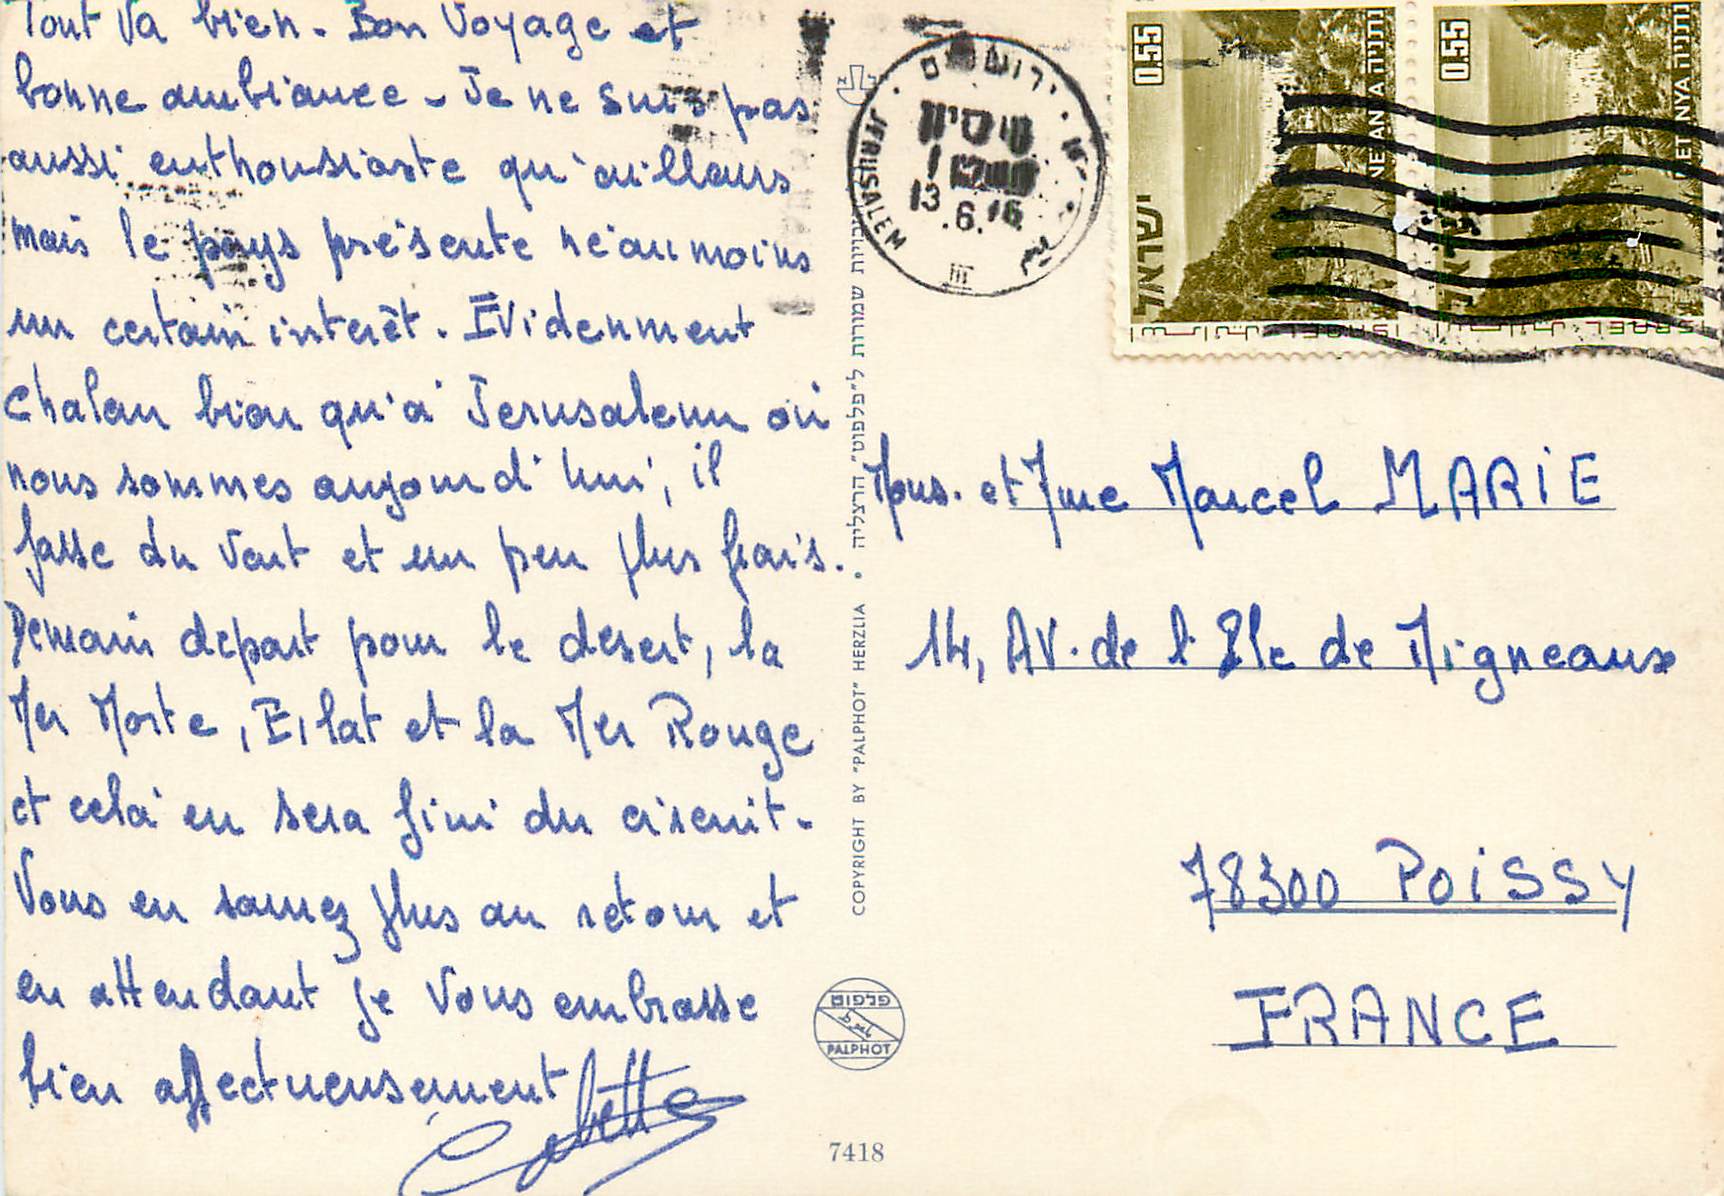 Tout va bien. Bon Voyage et
bonne ambiance - Je ne suis pas
aussi enthousiaste qu'ailleurs
mais le pays présente néanmoins
un certain interêt. Evidemment
chaleur bien qu'à Jerusalem où
nous sommes aujourd'hui, il
fasse du vent et un peu plus frais.
Demain départ pour le désert, la
Mer Morte, Eilat et la Mer Rouge
et celà en sera fini du circuit.
Vous en saurez plus au retour et
en attendant je vous embrasse
bien affectueusement
ירושלים
JERUSALEM
13.6.76
III
0.55
נתניה NETANYA
ישראל
ISRAEL
0.55
נתניה NETANYA
ISRAEL
Mons. et Mme Marcel MARIE
14, AV. de l'Ile de Migneaux
78300 POISSY
FRANCE
COPYRIGHT BY "PALPHOT" HERZLIA • שמורות ל"פלפוט" הרצליה
פלפוט
PALPHOT
7418